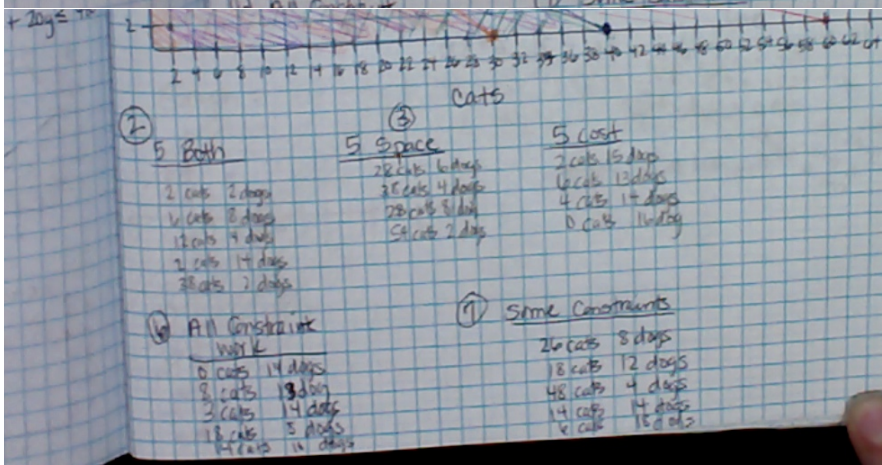 + 20y≤
2
2 4 6 8 10 12 14 16 18 20 22 24 26 28 30 32 34 36 38 40 42 44 46 48 50 52 54 56 58 60 62 64
cats
②
5 Both
2 cats 2 dogs
6 cats 8 dogs
12 cats 4 dogs
2 cats 14 dogs
38 cats 2 dogs
③
5 Space
28 cats 6 dogs
38 cats 4 dogs
28 cats 8 dog
54 cats 2 dogs
5 cost
2 cats 15 dogs
6 cats 13 dogs
4 cats 14 dogs
0 cats 16 dog
⑥ All Constraint
work
0 cats 14 dogs
8 cats 13 dog
3 cats 14 dogs
18 cats 5 dogs
cats dogs
⑦ Some Constraints
26 cats 8 dogs
18 cats 12 dogs
48 cats 4 dogs
14 cats 14 dogs
cats dogs